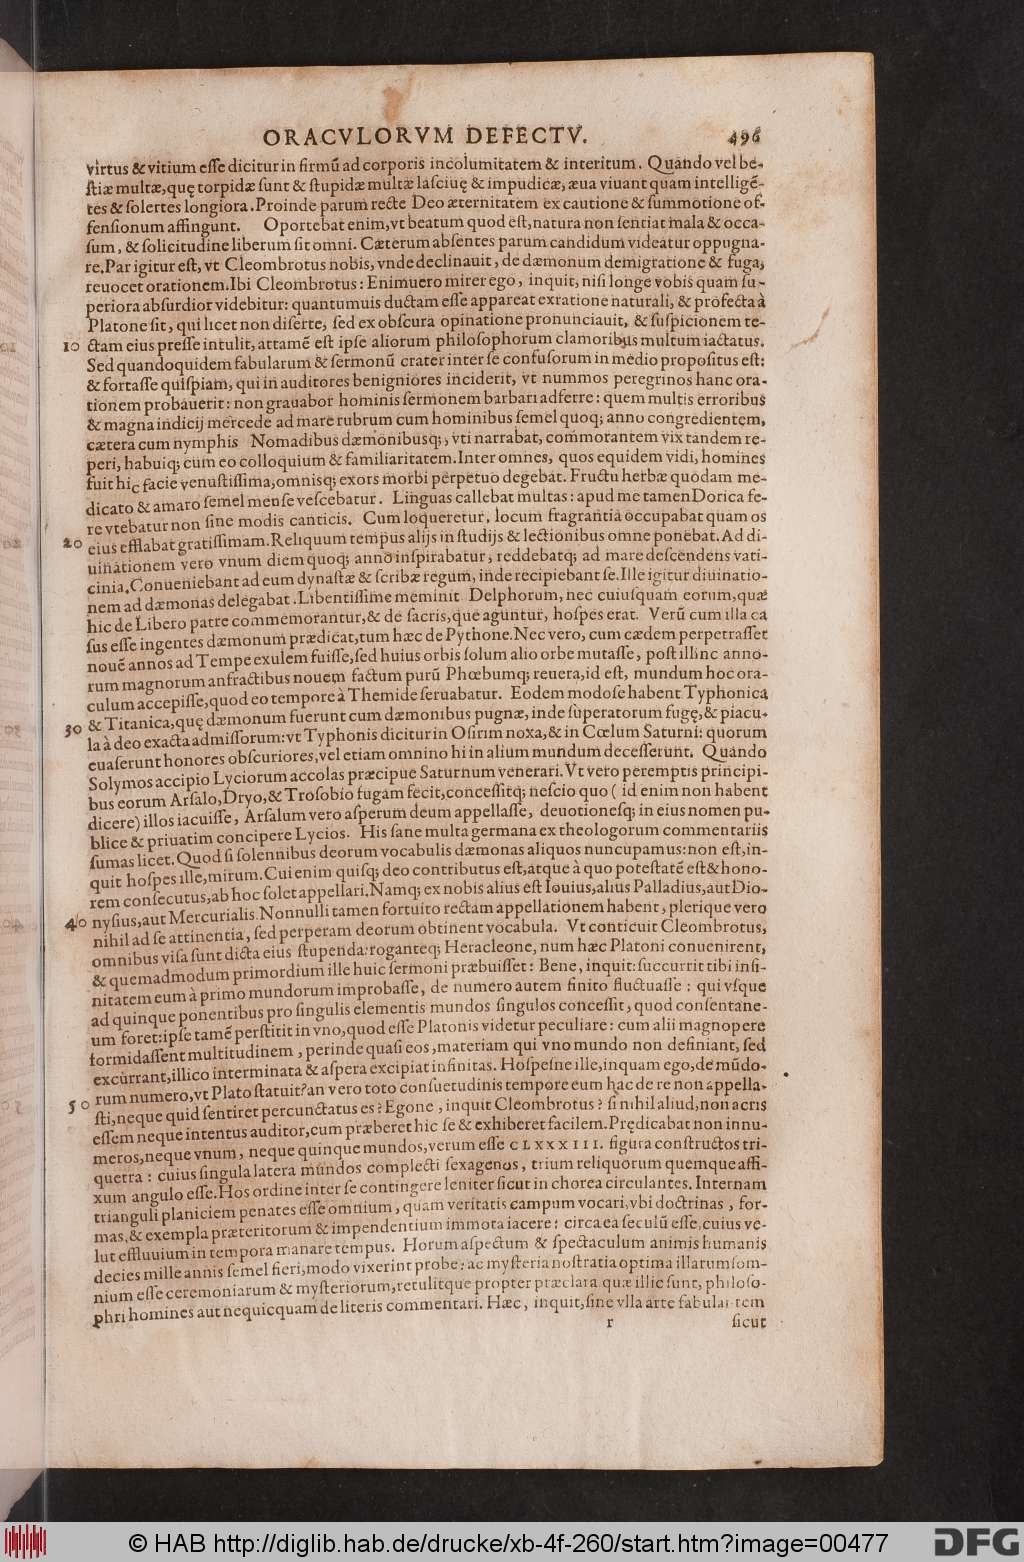 ORACVLORVM DEFECTV. 496
virtus & vitium eſſe dicitur in firmũ ad corporis incolumitatem & interitum. Quando vel be-
ſtiæ multæ, quę torpidæ ſunt & ſtupidæ multæ laſciuę & impudicæ, æua viuant quam intelligẽ-
tes & ſolertes longiora. Proinde parum recte Deo æternitatem ex cautione & ſummotione of-
fenſionum affingunt. Oportebat enim, vt beatum quod eſt, natura non ſentiat mala & occa-
ſum, & ſolicitudine liberum ſit omni. Cæterum abſentes parum candidum videatur oppugna-
re. Par igitur eſt, vt Cleombrotus nobis, vnde declinauit, de dæmonum demigratione & fuga,
reuocet orationem. Ibi Cleombrotus: Enimuero mirer ego, inquit, niſi longe vobis quam ſu-
periora abſurdior videbitur: quantumuis ductam eſſe appareat ex ratione naturali, & profecta à
Platone ſit, qui licet non diſerte, ſed ex obſcura opinatione pronunciauit, & ſuſpicionem te-
10 ctam eius preſſe intulit, attamẽ eſt ipſe aliorum philoſophorum clamoribus multum iactatus.
Sed quandoquidem fabularum & ſermonũ crater inter ſe confuſorum in medio propoſitus eſt:
& fortaſſe quiſpiam, qui in auditores benigniores inciderit, vt nummos peregrinos hanc ora-
tionem probauerit: non grauabor hominis ſermonem barbari adferre: quem multis erroribus
& magna indicij mercede ad mare rubrum cum hominibus ſemel quoq; anno congredientem,
cætera cum nymphis Nomadibus dæmonibusq;, vti narrabat, commorantem vix tandem re-
peri, habuiq; cum eo colloquium & familiaritatem. Inter omnes, quos equidem vidi, homines
fuit hic facie venuſtiſſima, omnisq; exors morbi perpetuo degebat. Fructu herbæ quodam me-
dicato & amaro ſemel menſe veſcebatur. Linguas callebat multas: apud me tamen Dorica fe-
re vtebatur non ſine modis canticis. Cum loqueretur, locum fragrantia occupabat quam os
20 eius efflabat gratiſſimam. Reliquum tempus alijs in ſtudijs & lectionibus omne ponebat. Ad di-
uinationem vero vnum diem quoq; anno inſpirabatur, reddebatq; ad mare deſcendens vati-
cinia. Conueniebant ad eum dynaſtæ & ſcribæ regum, inde recipiebant ſe. Ille igitur diuinatio-
nem ad dæmonas delegabat. Libentiſſime meminit Delphorum, nec cuiuſquam eorum, quæ
hic de Libero patre commemorantur, & de ſacris, que aguntur, hoſpes erat. Verũ cum illa ca
ſus eſſe ingentes dæmonum prædicat, tum hæc de Pythone. Nec vero, cum cædem perpetraſſet
nouẽ annos ad Tempe exulem fuiſſe, ſed huius orbis ſolum alio orbe mutaſſe, poſt illinc anno-
rum magnorum anfractibus nouem factum purũ Phœbumq; reuera, id eſt, mundum hoc ora-
culum accepiſſe, quod eo tempore à Themide ſeruabatur. Eodem modo ſe habent Typhonica
30 & Titanica, quę dæmonum fuerunt cum dæmonibus pugnæ, inde ſuperatorum fugę, & piacu-
la à deo exacta admiſſorum: vt Typhonis dicitur in Oſirim noxa, & in Cœlum Saturni: quorum
euaſerunt honores obſcuriores, vel etiam omnino hi in alium mundum deceſſerunt. Quando
Solymos accipio Lyciorum accolas præcipue Saturnum venerari. Vt vero peremptis principi-
bus eorum Arſalo, Dryo, & Troſobio fugam fecit, conceſſitq; neſcio quo (id enim non habent
dicere) illos iacuiſſe, Arſalum vero aſperum deum appellaſſe, deuotioneſq; in eius nomen pu-
blice & priuatim concipere Lycios. His ſane multa germana ex theologorum commentariis
ſumas licet. Quod ſi ſolennibus deorum vocabulis dæmonas aliquos nuncupamus: non eſt, in-
quit hoſpes ille, mirum. Cui enim quiſq; deo contributus eſt, atque à quo poteſtatẽ eſt & hono-
rem conſecutus, ab hoc ſolet appellari. Namq; ex nobis alius eſt Iouius, alius Palladius, aut Dio-
40 nyſius, aut Mercurialis. Nonnulli tamen fortuito rectam appellationem habent, plerique vero
nihil ad ſe attinentia, ſed perperam deorum obtinent vocabula. Vt conticuit Cleombrotus,
omnibus viſa ſunt dicta eius ſtupenda: roganteq; Heracleone, num hæc Platoni conuenirent,
& quemadmodum primordium ille huic ſermoni præbuiſſet: Bene, inquit: ſuccurrit tibi infi-
nitatem eum à primo mundorum improbaſſe, de numero autem finito fluctuaſſe: qui vſque
ad quinque ponentibus pro ſingulis elementis mundos ſingulos conceſſit, quod conſentane-
um foret: ipſe tamẽ perſtitit in vno, quod eſſe Platonis videtur peculiare: cum alii magnopere
formidaſſent multitudinem, perinde quaſi eos, materiam qui vno mundo non definiant, ſed
excurrant, illico interminata & aſpera excipiat infinitas. Hoſpeſne ille, inquam ego, de mũdo-
rum numero, vt Plato ſtatuit? an vero toto conſuetudinis tempore eum hac de re non appella-
50 ſti, neque quid ſentiret percunctatus es? Egone, inquit Cleombrotus? ſi nihil aliud, non acris
eſſem neque intentus auditor, cum præberet hic ſe & exhiberet facilem. Prędicabat non innu-
meros, neque vnum, neque quinque mundos, verum eſſe CLXXXIII. figura conſtructos tri-
quetra: cuius ſingula latera mundos complecti ſexagenos, trium reliquorum quemque affi-
xum angulo eſſe. Hos ordine inter ſe contingere leniter ſicut in chorea circulantes. Internam
trianguli planiciem penates eſſe omnium, quam veritatis campum vocari, vbi doctrinas, for-
mas, & exempla præteritorum & impendentium immota iacere: circa ea ſeculũ eſſe, cuius ve-
lut effluuium in tempora manare tempus. Horum aſpectum & ſpectaculum animis humanis
decies mille annis ſemel fieri, modo vixerint probe: ac myſteria noſtratia optima illarum ſom-
nium eſſe ceremoniarum & myſteriorum, retulitque propter præclara quæ illic ſunt, philoſo-
phri homines aut nequicquam de literis commentari. Hæc, inquit, ſine vlla arte fabulantem
r ſicut
© HAB http://diglib.hab.de/drucke/xb-4f-260/start.htm?image=00477 DFG